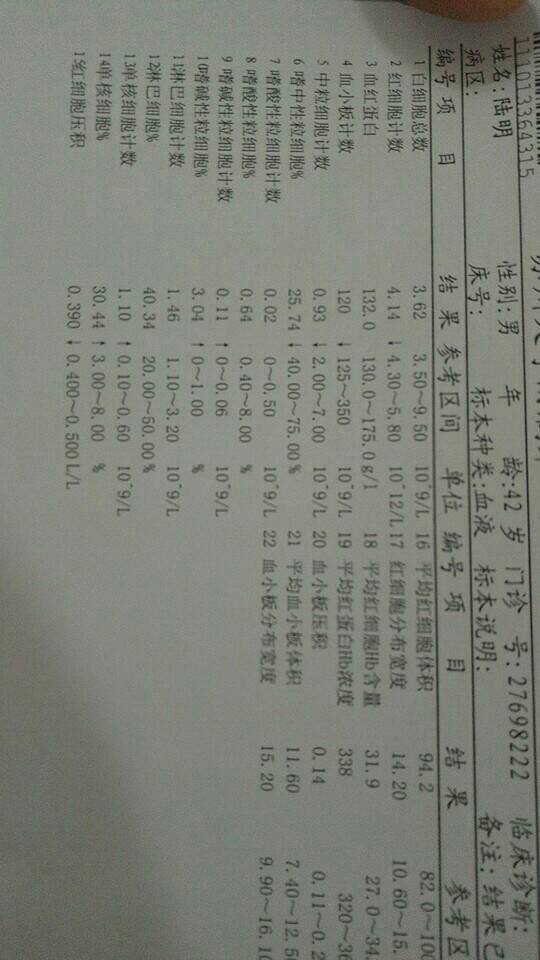 1110133364315
姓名:陆明 性别:男 年 龄:42 岁 门诊 号:27698222 临床诊断:
病区: 床号: 标本种类:血液 标本说明: 备注:结果已
编号 项 目 结 果 参考区间 单位 编号 项 目 结 果 参考区
1 白细胞总数 3.62 3.50~9.50 10^9/L 16 平均红细胞体积 94.2 82.0~100
2 红细胞计数 4.14 ↓ 4.30~5.80 10^12/L 17 红细胞分布宽度 14.20 10.60~15.
3 血红蛋白 132.0 130.0~175.0 g/l 18 平均红细胞Hb含量 31.9 27.0~34.
4 血小板计数 120 ↓ 125~350 10^9/L 19 平均红蛋白Hb浓度 338 320~36
5 中粒细胞计数 0.93 ↓ 2.00~7.00 10^9/L 20 血小板压积 0.14 0.11~0.2
6 嗜中性粒细胞% 25.74 ↓ 40.00~75.00 % 21 平均血小板体积 11.60 7.40~12.5
7 嗜酸性粒细胞计数 0.02 0~0.50 10^9/L 22 血小板分布宽度 15.20 9.90~16.10
8 嗜酸性粒细胞% 0.64 0.40~8.00 %
9 嗜碱性粒细胞计数 0.11 ↑ 0~0.06 10^9/L
10 嗜碱性粒细胞% 3.04 ↑ 0~1.00 %
11 淋巴细胞计数 1.46 1.10~3.20 10^9/L
12 淋巴细胞% 40.34 20.00~50.00 %
13 单核细胞计数 1.10 ↑ 0.10~0.60 10^9/L
14 单核细胞% 30.44 ↑ 3.00~8.00 %
15 红细胞压积 0.390 ↓ 0.400~0.500 L/L